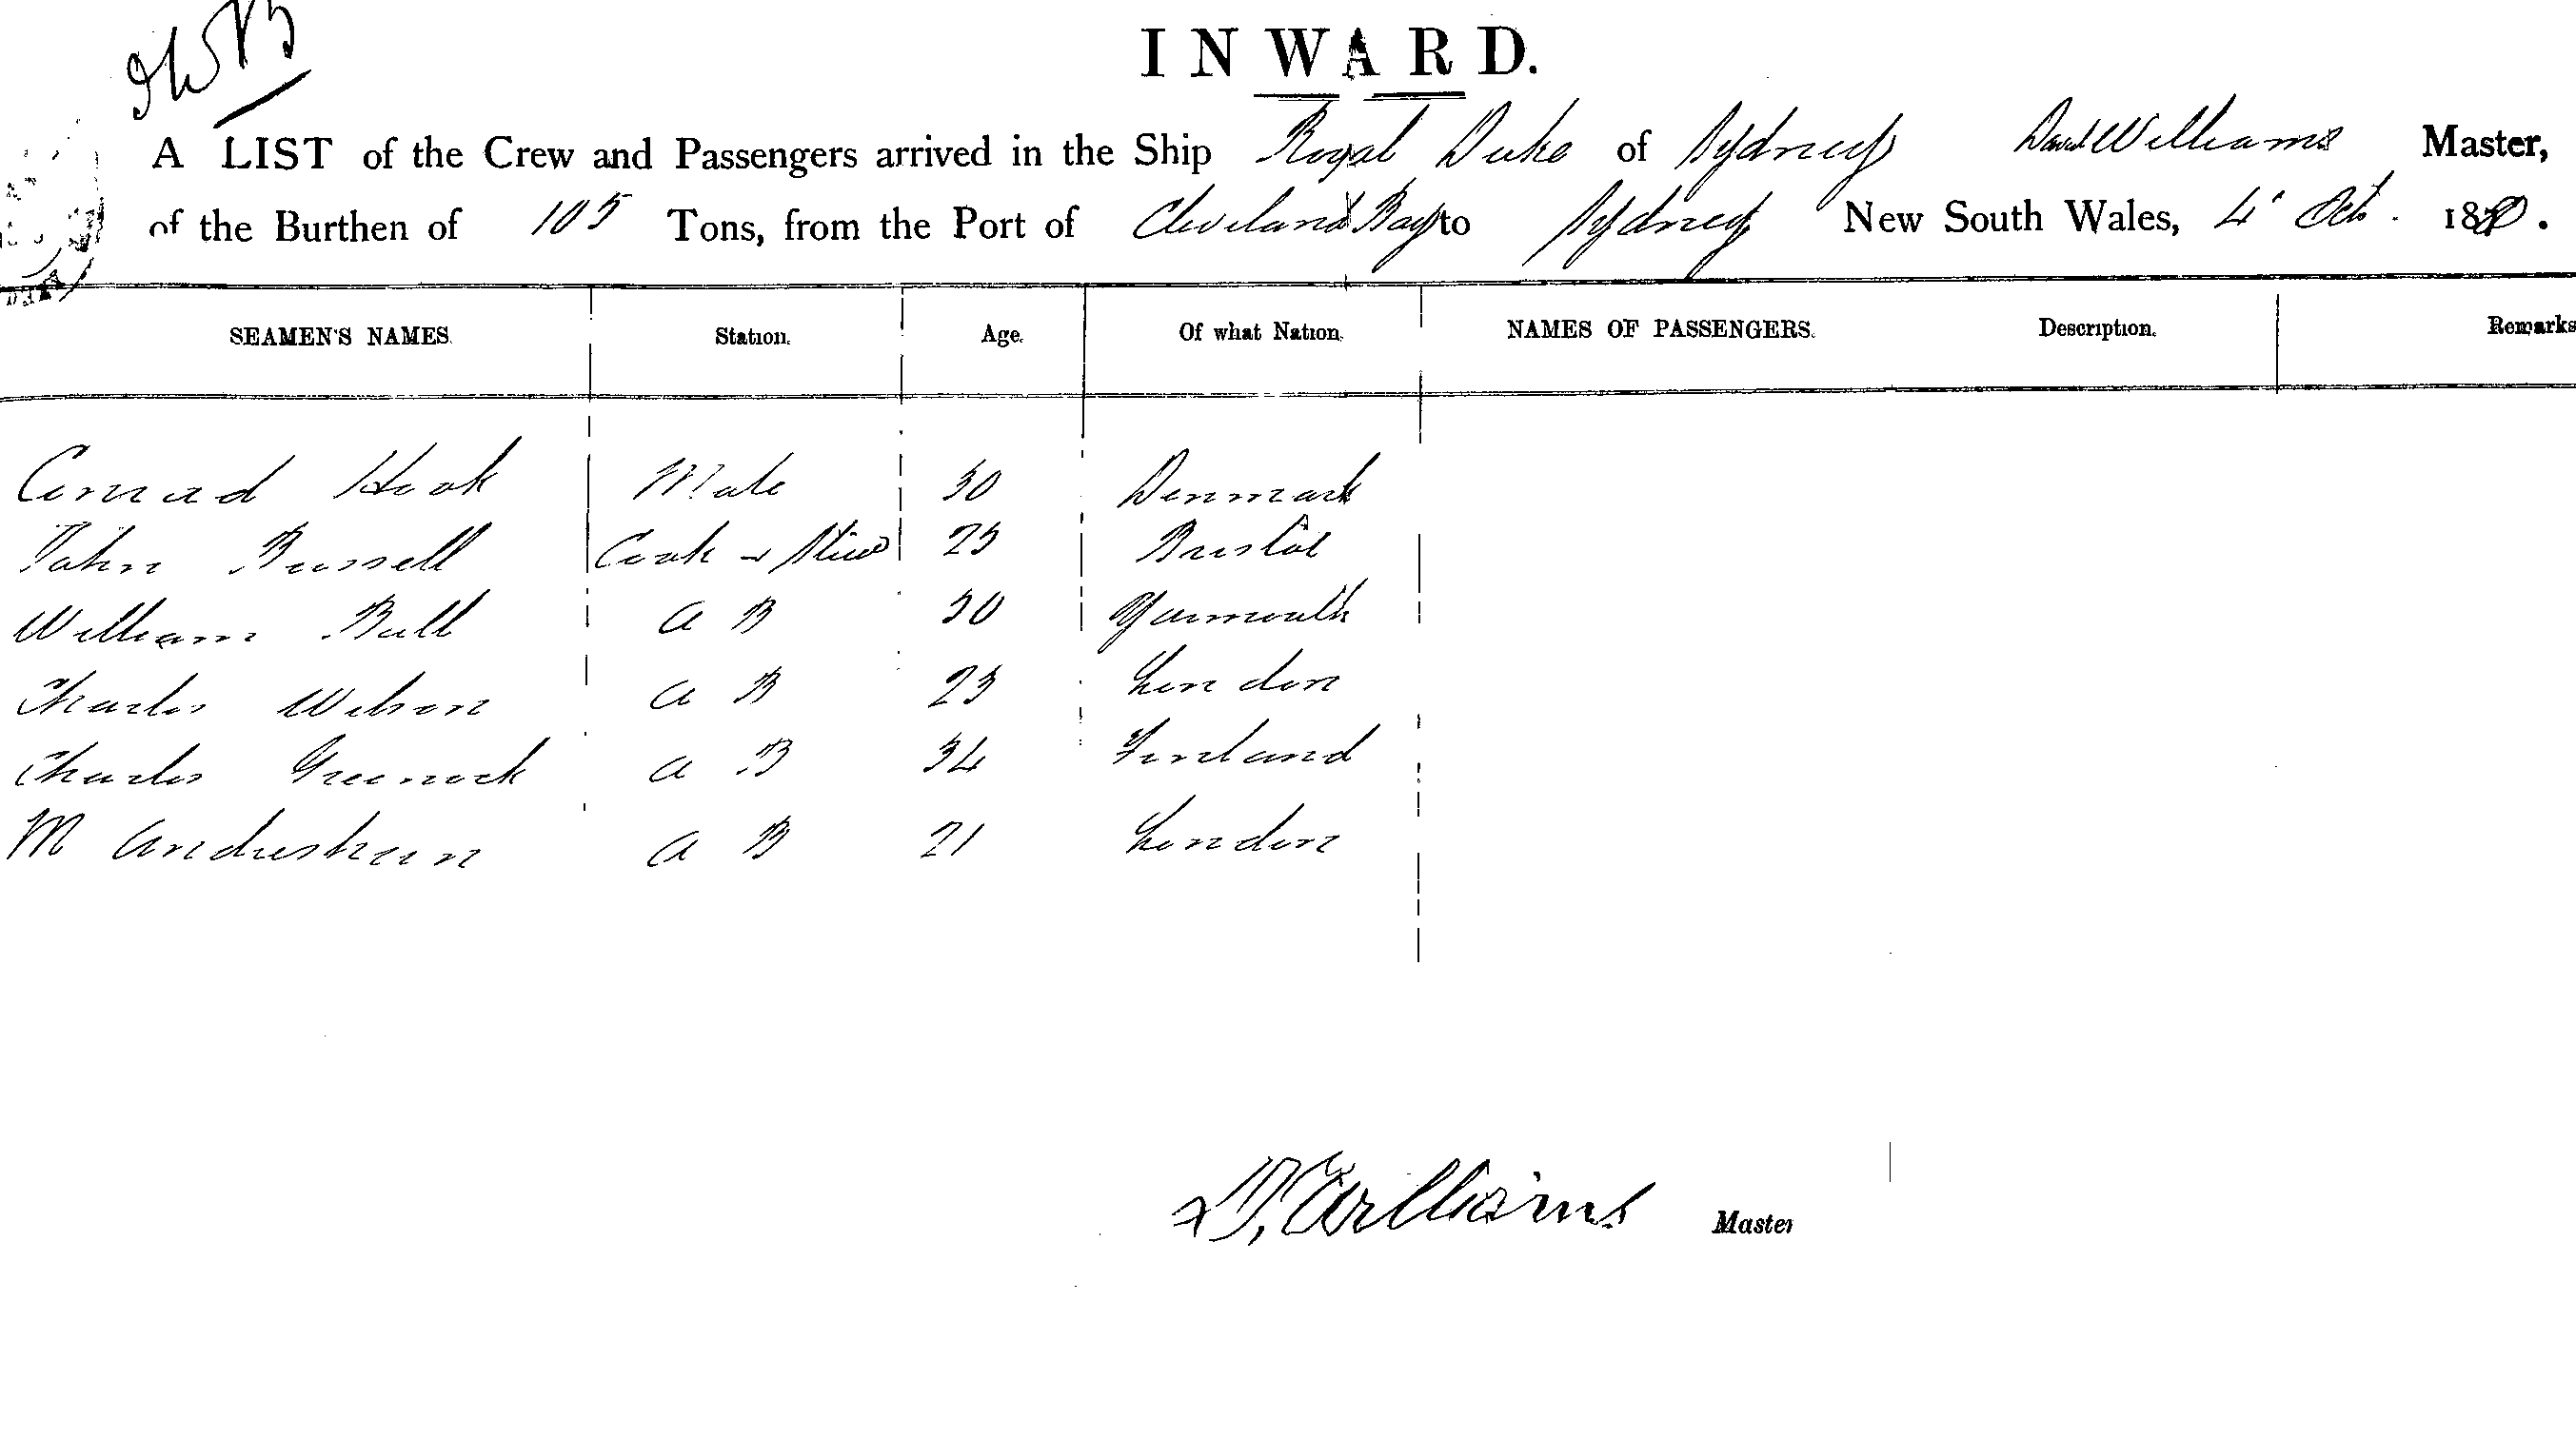 INWARD.
A LIST of the Crew and Passengers arrived in the Ship Royal Duke of Sydney David Williams Master,
of the Burthen of 105 Tons, from the Port of Cleveland Bay to Sydney New South Wales, 4' Oct. 1880.
SEAMEN'S NAMES. Station. Age. Of what Nation. NAMES OF PASSENGERS. Description. Remarks
Conrad Hook Mate 30 Denmark
John Russell Cook & Stew 25 Bristol
William Bull A B 30 Yarmouth
Charles Wilson A B 23 London
Charles Greenock A B 34 Finland
M A B 21 London
D. Williams Master